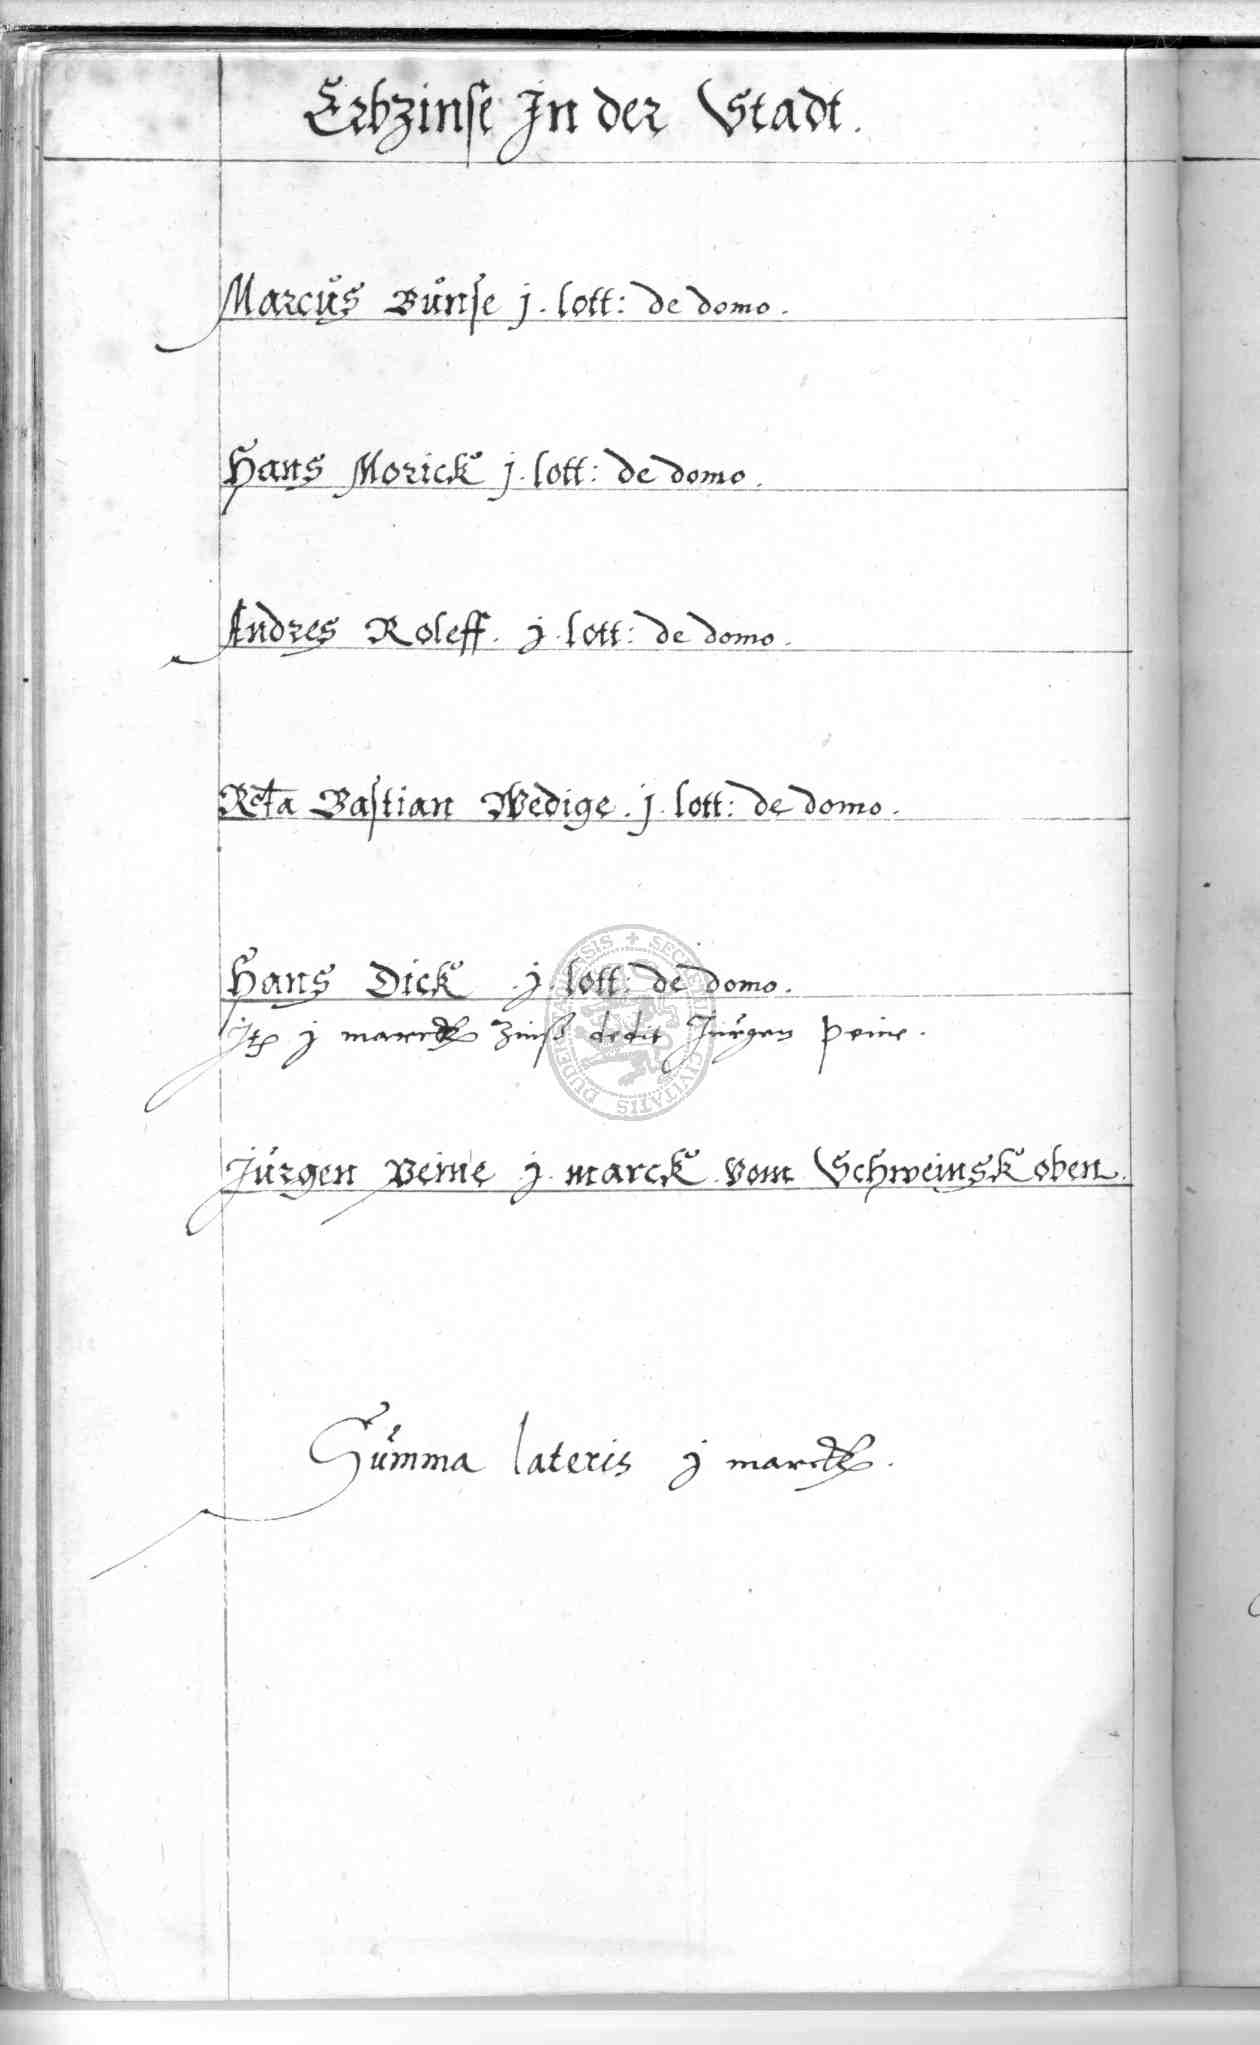 Erbzinse In der Stadt.
Marcus Bunse j. lott: de domo.
Hans Morick j. lott: de domo.
Andres Roleff. j. lott: de domo.
Rcta Bastian Wedige. j. lott: de domo.
Hans Dick .j. lott: de domo.
j marck Zinß dedit Jurgen peine.
Jurgen Peine .j. marck vom Schweinskoben.
Summa lateris j marck.